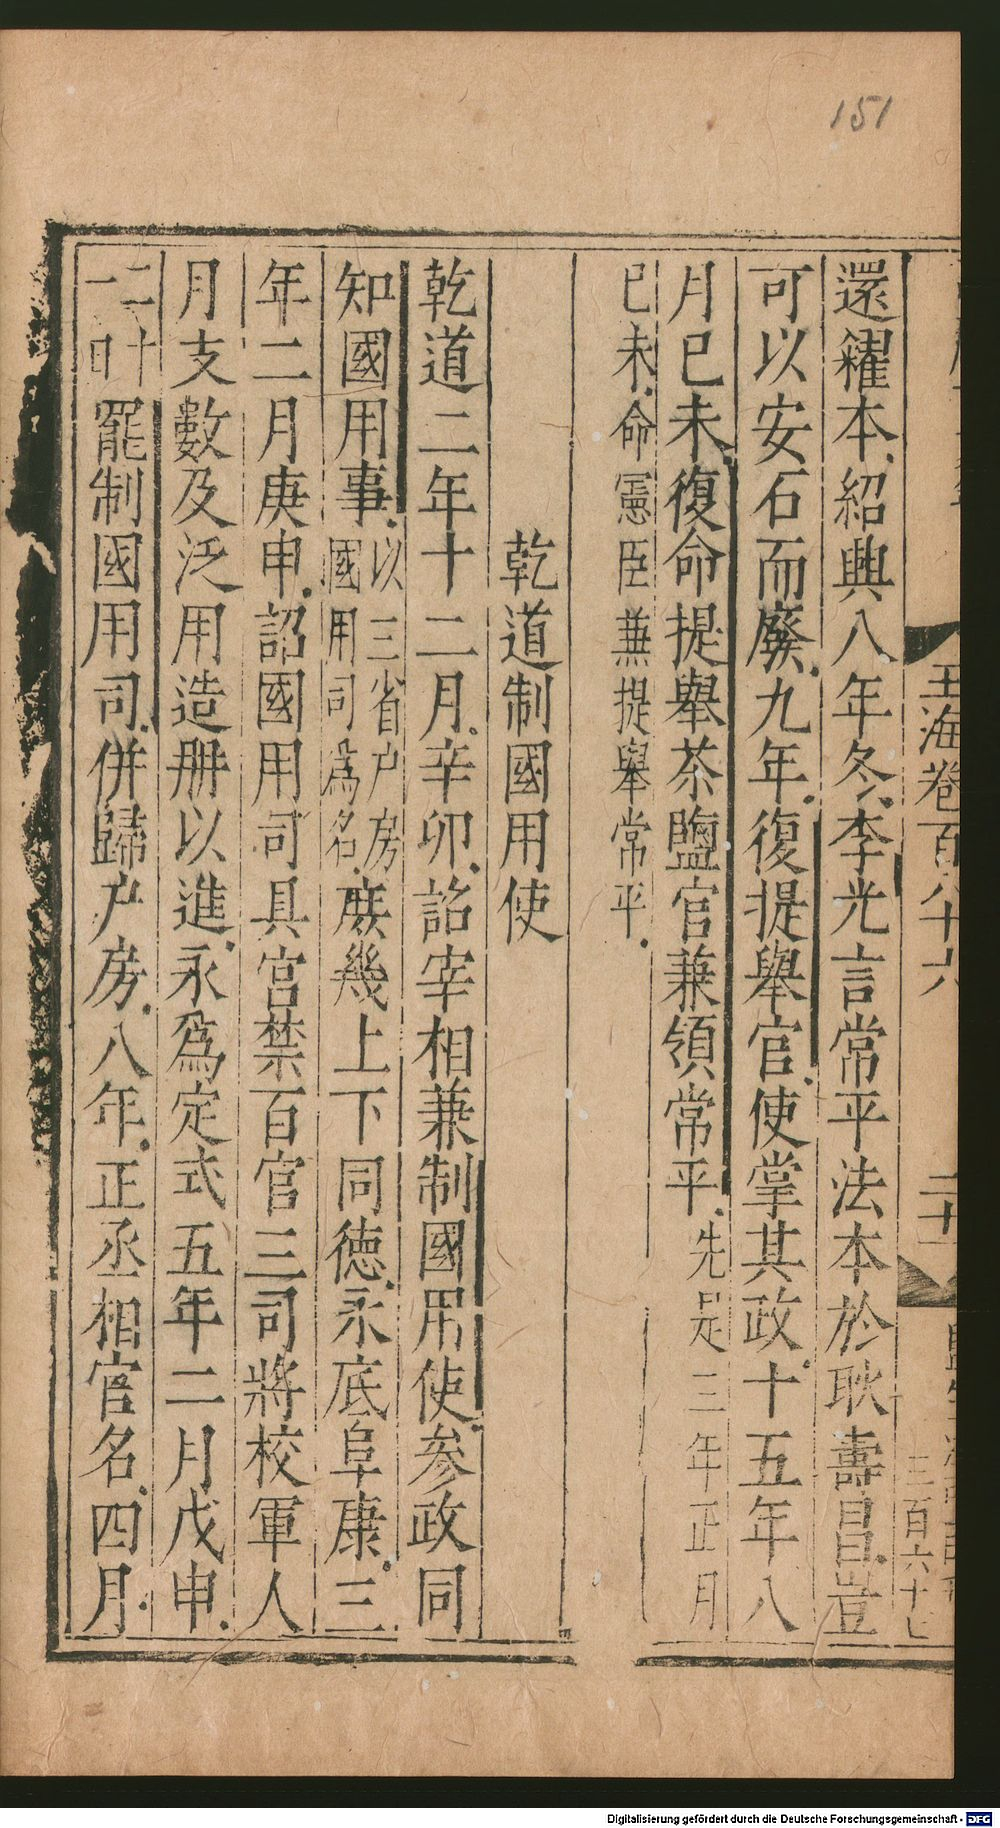 151
玉海卷百八十六
二十一
三百六十七
還糴本紹興八年冬李光言常平法本於耿壽昌豈
可以安石而廢九年復提舉官使掌其政十五年八
月已未復命提舉茶鹽官兼領常平先是三年正月
已未命憲臣兼提舉常平
乾道制國用使
乾道二年十二月辛卯詔宰相兼制國用使參政同
知國用事以三省户房國用司爲名庶幾上下同德永底阜康三
年二月庚申詔國用司具宮禁百官三司將校軍人
月支數及泛用造册以進永爲定式五年二月戊申
二十一日罷制國用司併歸户房八年正丞相官名四月
Digitalisierung gefördert durch die Deutsche Forschungsgemeinschaft - DFG